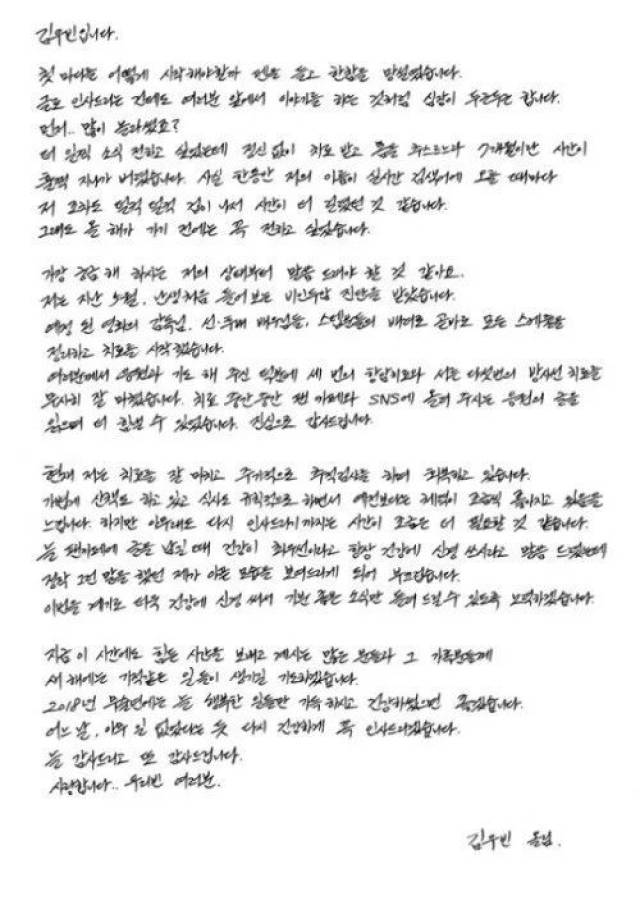 김우빈입니다.
첫 마디를 어떻게 시작해야할까 펜을 들고 한참을 망설였습니다.
글로 인사드리는 건데도 여러분 앞에서 이야기를 하는 것처럼 심장이 두근두근 합니다.
먼저.. 많이 놀라셨죠?
더 일찍 소식 전하고 싶었는데 정신 없이 치료 받고 몸을 추스르느라 7개월이란 시간이
훌쩍 지나가 버렸습니다. 사실 한동안 저의 이름이 실시간 검색어에 오를 때마다
저 조차도 덜컥 덜컥 겁이 나서 시간이 더 걸렸던 것 같습니다.
그래도 올 해가 가기 전에는 꼭 전하고 싶었습니다.
가장 궁금 해 하시는 저의 상태부터 말씀 드려야 할 것 같아요.
저는 지난 5월, 난생처음 들어보는 비인두암 진단을 받았습니다.
예정 된 영화의 감독님, 선·후배 배우님들, 스텝분들의 배려로 곧바로 모든 스케줄을
정리하고 치료를 시작했습니다.
여러분께서 응원과 기도 해 주신 덕분에 세 번의 항암치료와 서른 다섯번의 방사선 치료를
무사히 잘 마쳤습니다. 치료 중간중간 팬 카페와 SNS에 올려 주시는 응원의 글을
읽으며 더 힘낼 수 있었습니다. 진심으로 감사드립니다.
현재 저는 치료를 잘 마치고 주기적으로 추적검사를 하며 회복하고 있습니다.
가볍게 산책도 하고 있고 식사도 규칙적으로 하면서 예전보다는 체력이 조금씩 좋아지고 있음을
느낍니다. 하지만 아무래도 다시 인사드리기까지는 시간이 조금은 더 필요할 것 같습니다.
늘 팬카페에 글을 남길 때 건강이 최우선이라고 항상 건강에 신경 쓰시라고 말씀 드렸는데
정작 그런 말을 했던 제가 아픈 모습을 보여드리게 되어 부끄럽습니다.
이번을 계기로 더욱 건강에 신경 써서 기분 좋은 소식만 들려 드릴 수 있도록 노력하겠습니다.
지금 이 시간에도 힘든 시간을 보내고 계시는 많은 분들과 그 가족분들께
새 해에는 기적같은 일들이 생기길 기도하겠습니다.
2018년 무술년에는 늘 행복한 일들만 가득 하시고 건강하셨으면 좋겠습니다.
어느 날, 아무 일 없었다는 듯 다시 건강하게 꼭 인사드리겠습니다.
늘 감사드리고 또 감사드립니다.
사랑합니다.. 우리빈 여러분.
김우빈 올림.